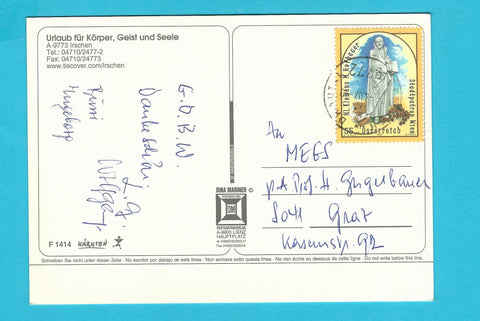 Urlaub für Körper, Geist und Seele
A-9773 Irschen
Tel.: 04710/2477-2
Fax: 04710/24773
www.tiscover.com/irschen
G.O.B.W.
Dankeschön
L.G.
Bussi
Ingeborg
Wolfgang
F 1414 KÄRNTEN
DINA MARINER
DM
POSTKARTENVERLAG
A-9900 LIENZ
HAUPTPLATZ
Hl. Klemens M. Hofbauer
Stadtpatron Wien
Österreich
An
MEGS
p.A. Prof. H.
8041 Graz
92
Schreiben Sie nicht unter dieser Zeile - No escribir por debajo de esta linea - Non scrivere sotto questa linea - Ne pas écrire en dessous de cette ligne - Do not write below this line.